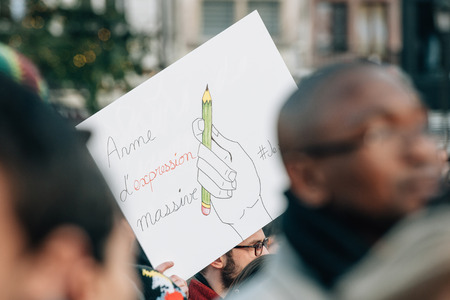 Arme
d'expression
massive
#Je